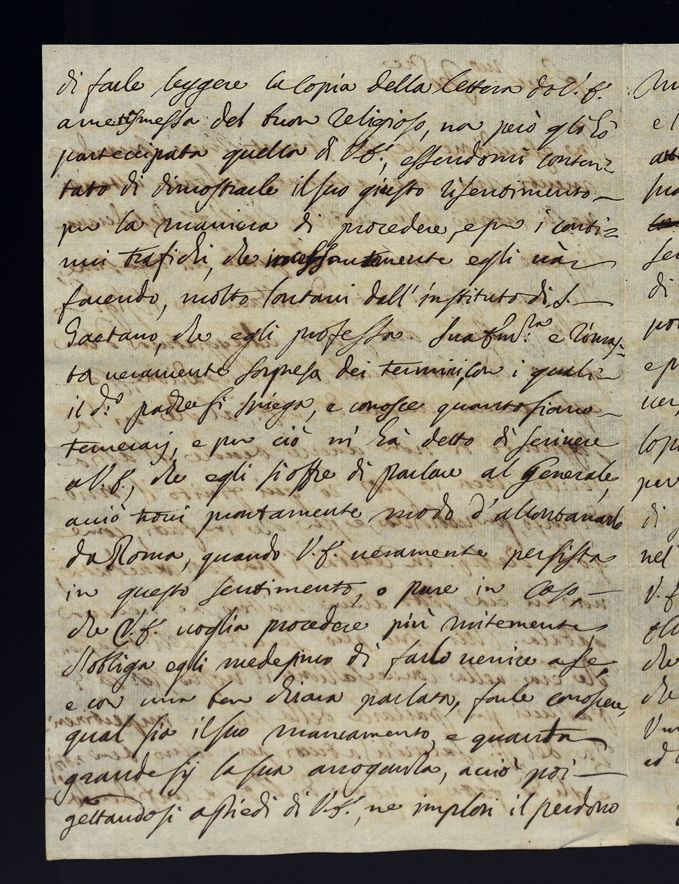 di farle leggere la Copia della lettera da V.S.
a me trasmessa del buon religioso, na però gli hò
partecipata quella di V.S., essendomi conten=
tato di dimostrarle il suo giusto risentimento
per la maniera di procedere, e per i conti=
nui trafichi, che incessantemente egli và
facendo, molto lontani dall'instituto di S.
Gaetano, che egli professa. Sua Em.za è rimas=
ta veramente sorpresa dei termini, con i quali
il d.o padre si spiega, e conosce quanto siano
temerarj, e per ciò m'hà detto di scrivere
a V.S., che egli s'offre di parlare al Generale,
acciò trovi prontamente modo d'allontanarlo
da Roma, quando V.S. veramente persista
in questo sentimento, o pure in Caso
che V.S. voglia procedere più mitemente
s'obliga egli medesimo di farlo venire a se
e con una ben chiara parlata, farle conoscere,
qual sia il suo mancamento, e quanto
grande sij la sua arroganza, acciò poi
gettandosi a piedi di V.S., ne implori il perdono